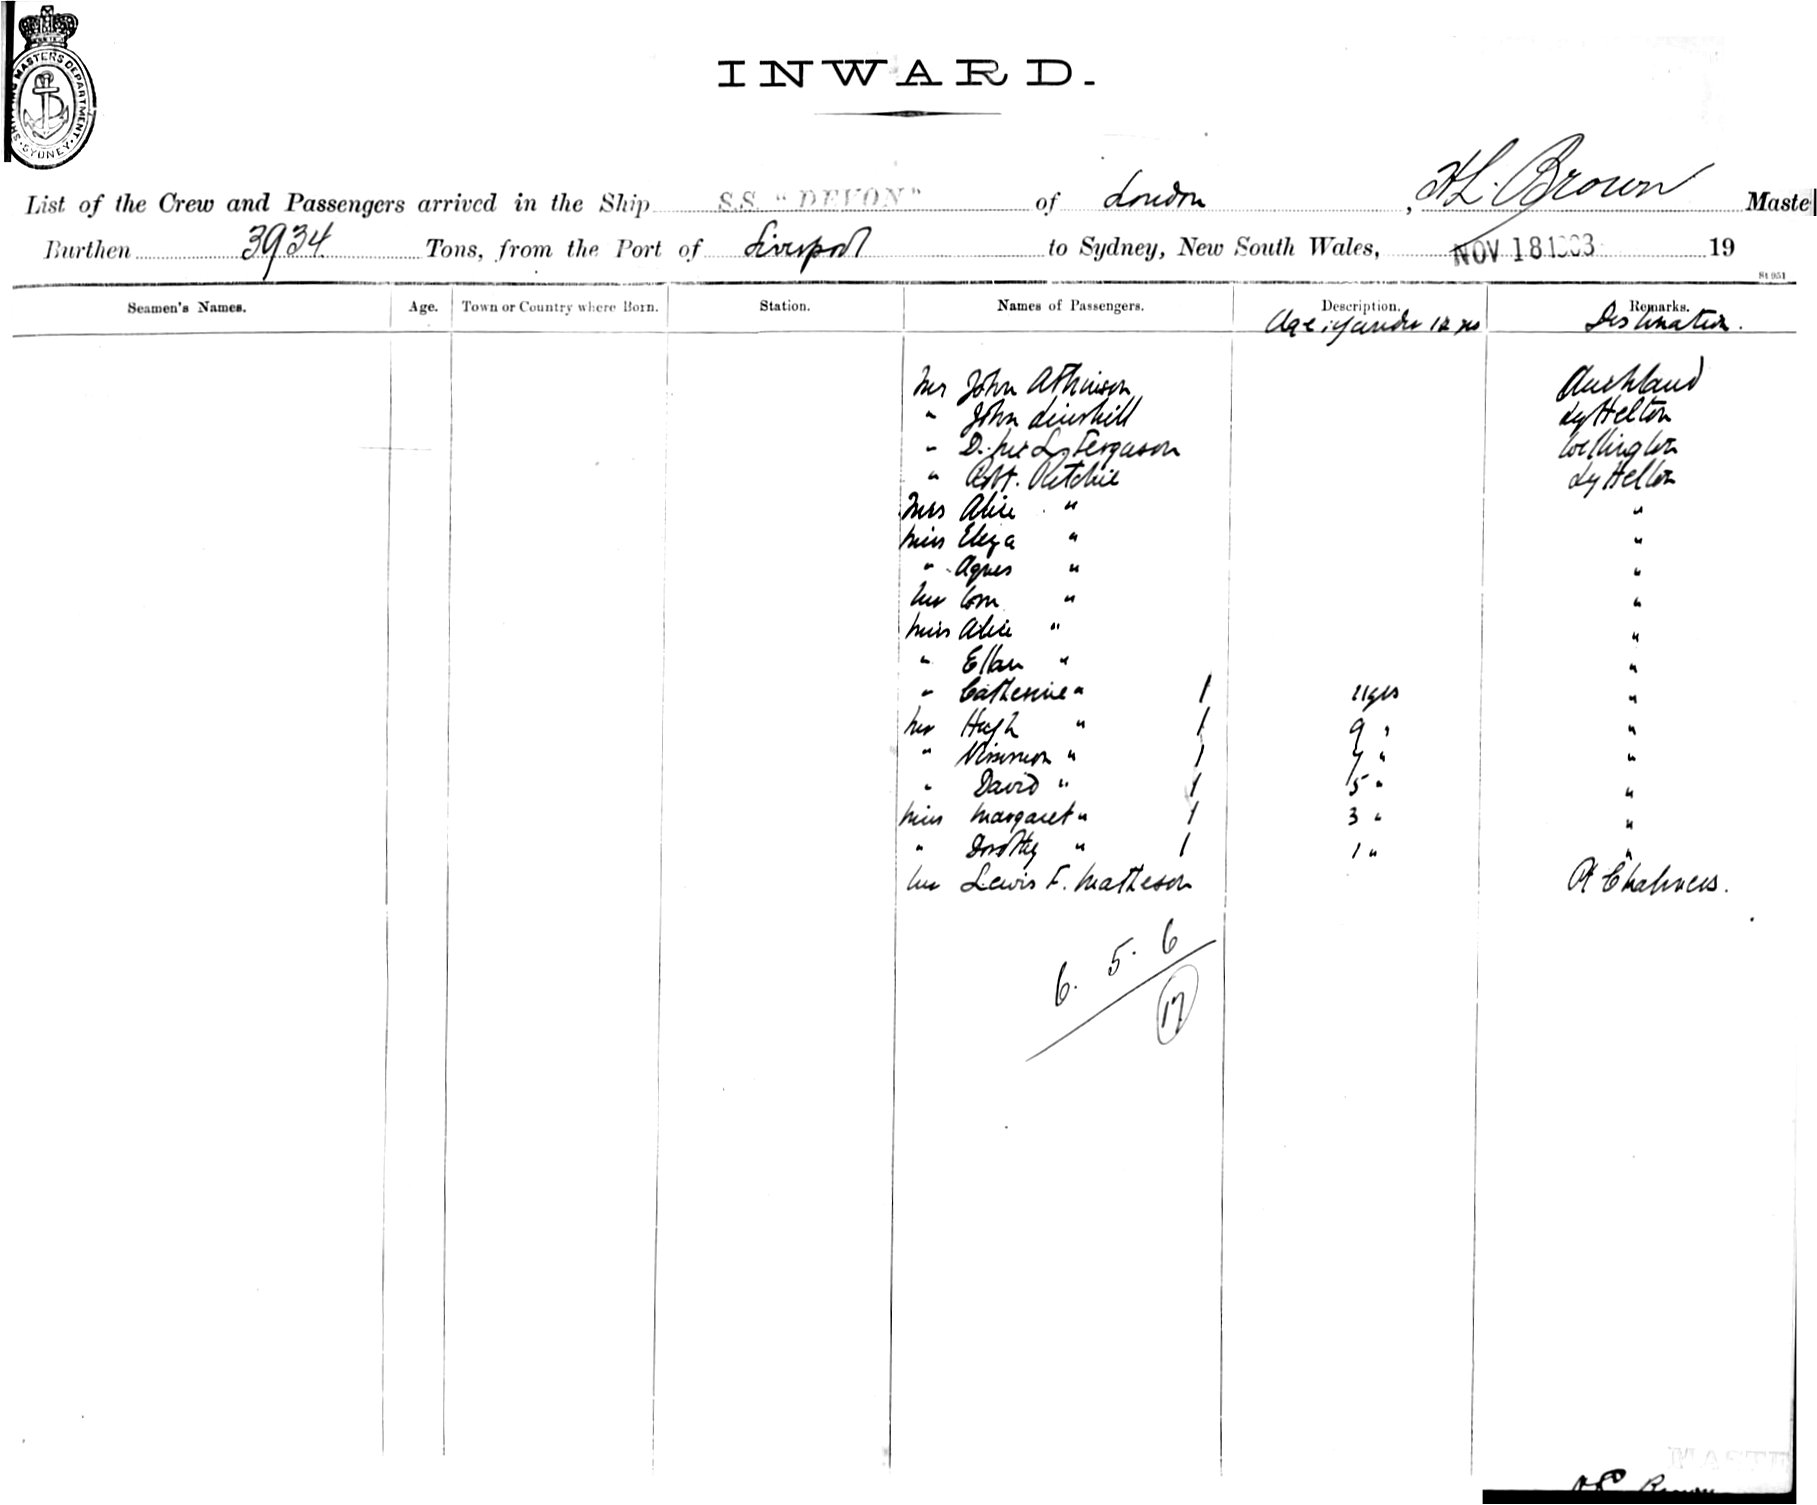 SHIPPING MASTERS DEPARTMENT · SYDNEY ·
INWARD.
List of the Crew and Passengers arrived in the Ship S.S. "DEVON" of London, H L. Brown Maste
Burthen 3934 Tons, from the Port of Liverpool to Sydney, New South Wales, NOV 18 1903 19
St 951
Seamen's Names. Age. Town or Country where Born. Station. Names of Passengers. Description. Remarks.
Age if under 12 yrs Destination.
Mr John Atkinson Auckland
" John Lyttelton
" D. McL. Ferguson Wellington
" Robt. Ritchie Lyttelton
Mrs Alice " "
Miss Eliza " "
" Agnes " "
Mr Wm " "
Miss Alice " "
" Ellen " "
" Catherine " 1 11 yrs "
Mr Hugh " 1 9 " "
" " 1 7 " "
" David " 1 5 " "
Miss Margaret " 1 3 " "
" Dorothy " 1 1 " "
Mr Lewis F. Matheson Pt Chalmers.
6. 5. 6
17
MASTE
Brown